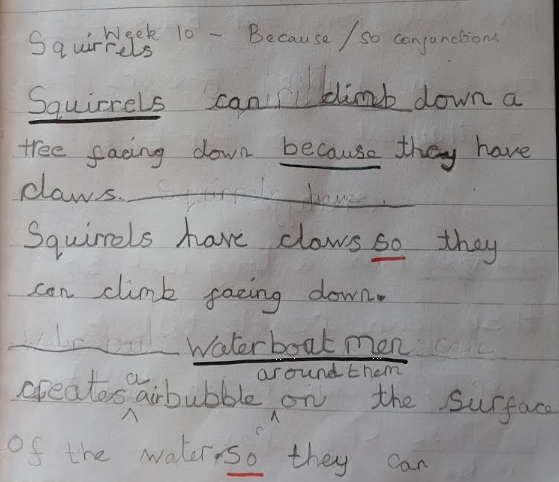 Week 10 - Because / so conjunctions
Squirrels
Squirrels can climb down a
tree facing down because they have
claws. Squirrels have
Squirrels have claws so they
can climb facing down.
Water boat men
around them
creates a airbubble on the surface
of the water. so they can